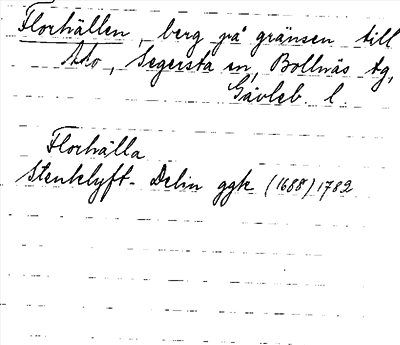 Florhällen, berg på gränsen till
Alo, Segersta sn, Bollnäs tg,
Gävleb. l.
Florhälla
Stenklyft- Delin ggk (1688) 1782